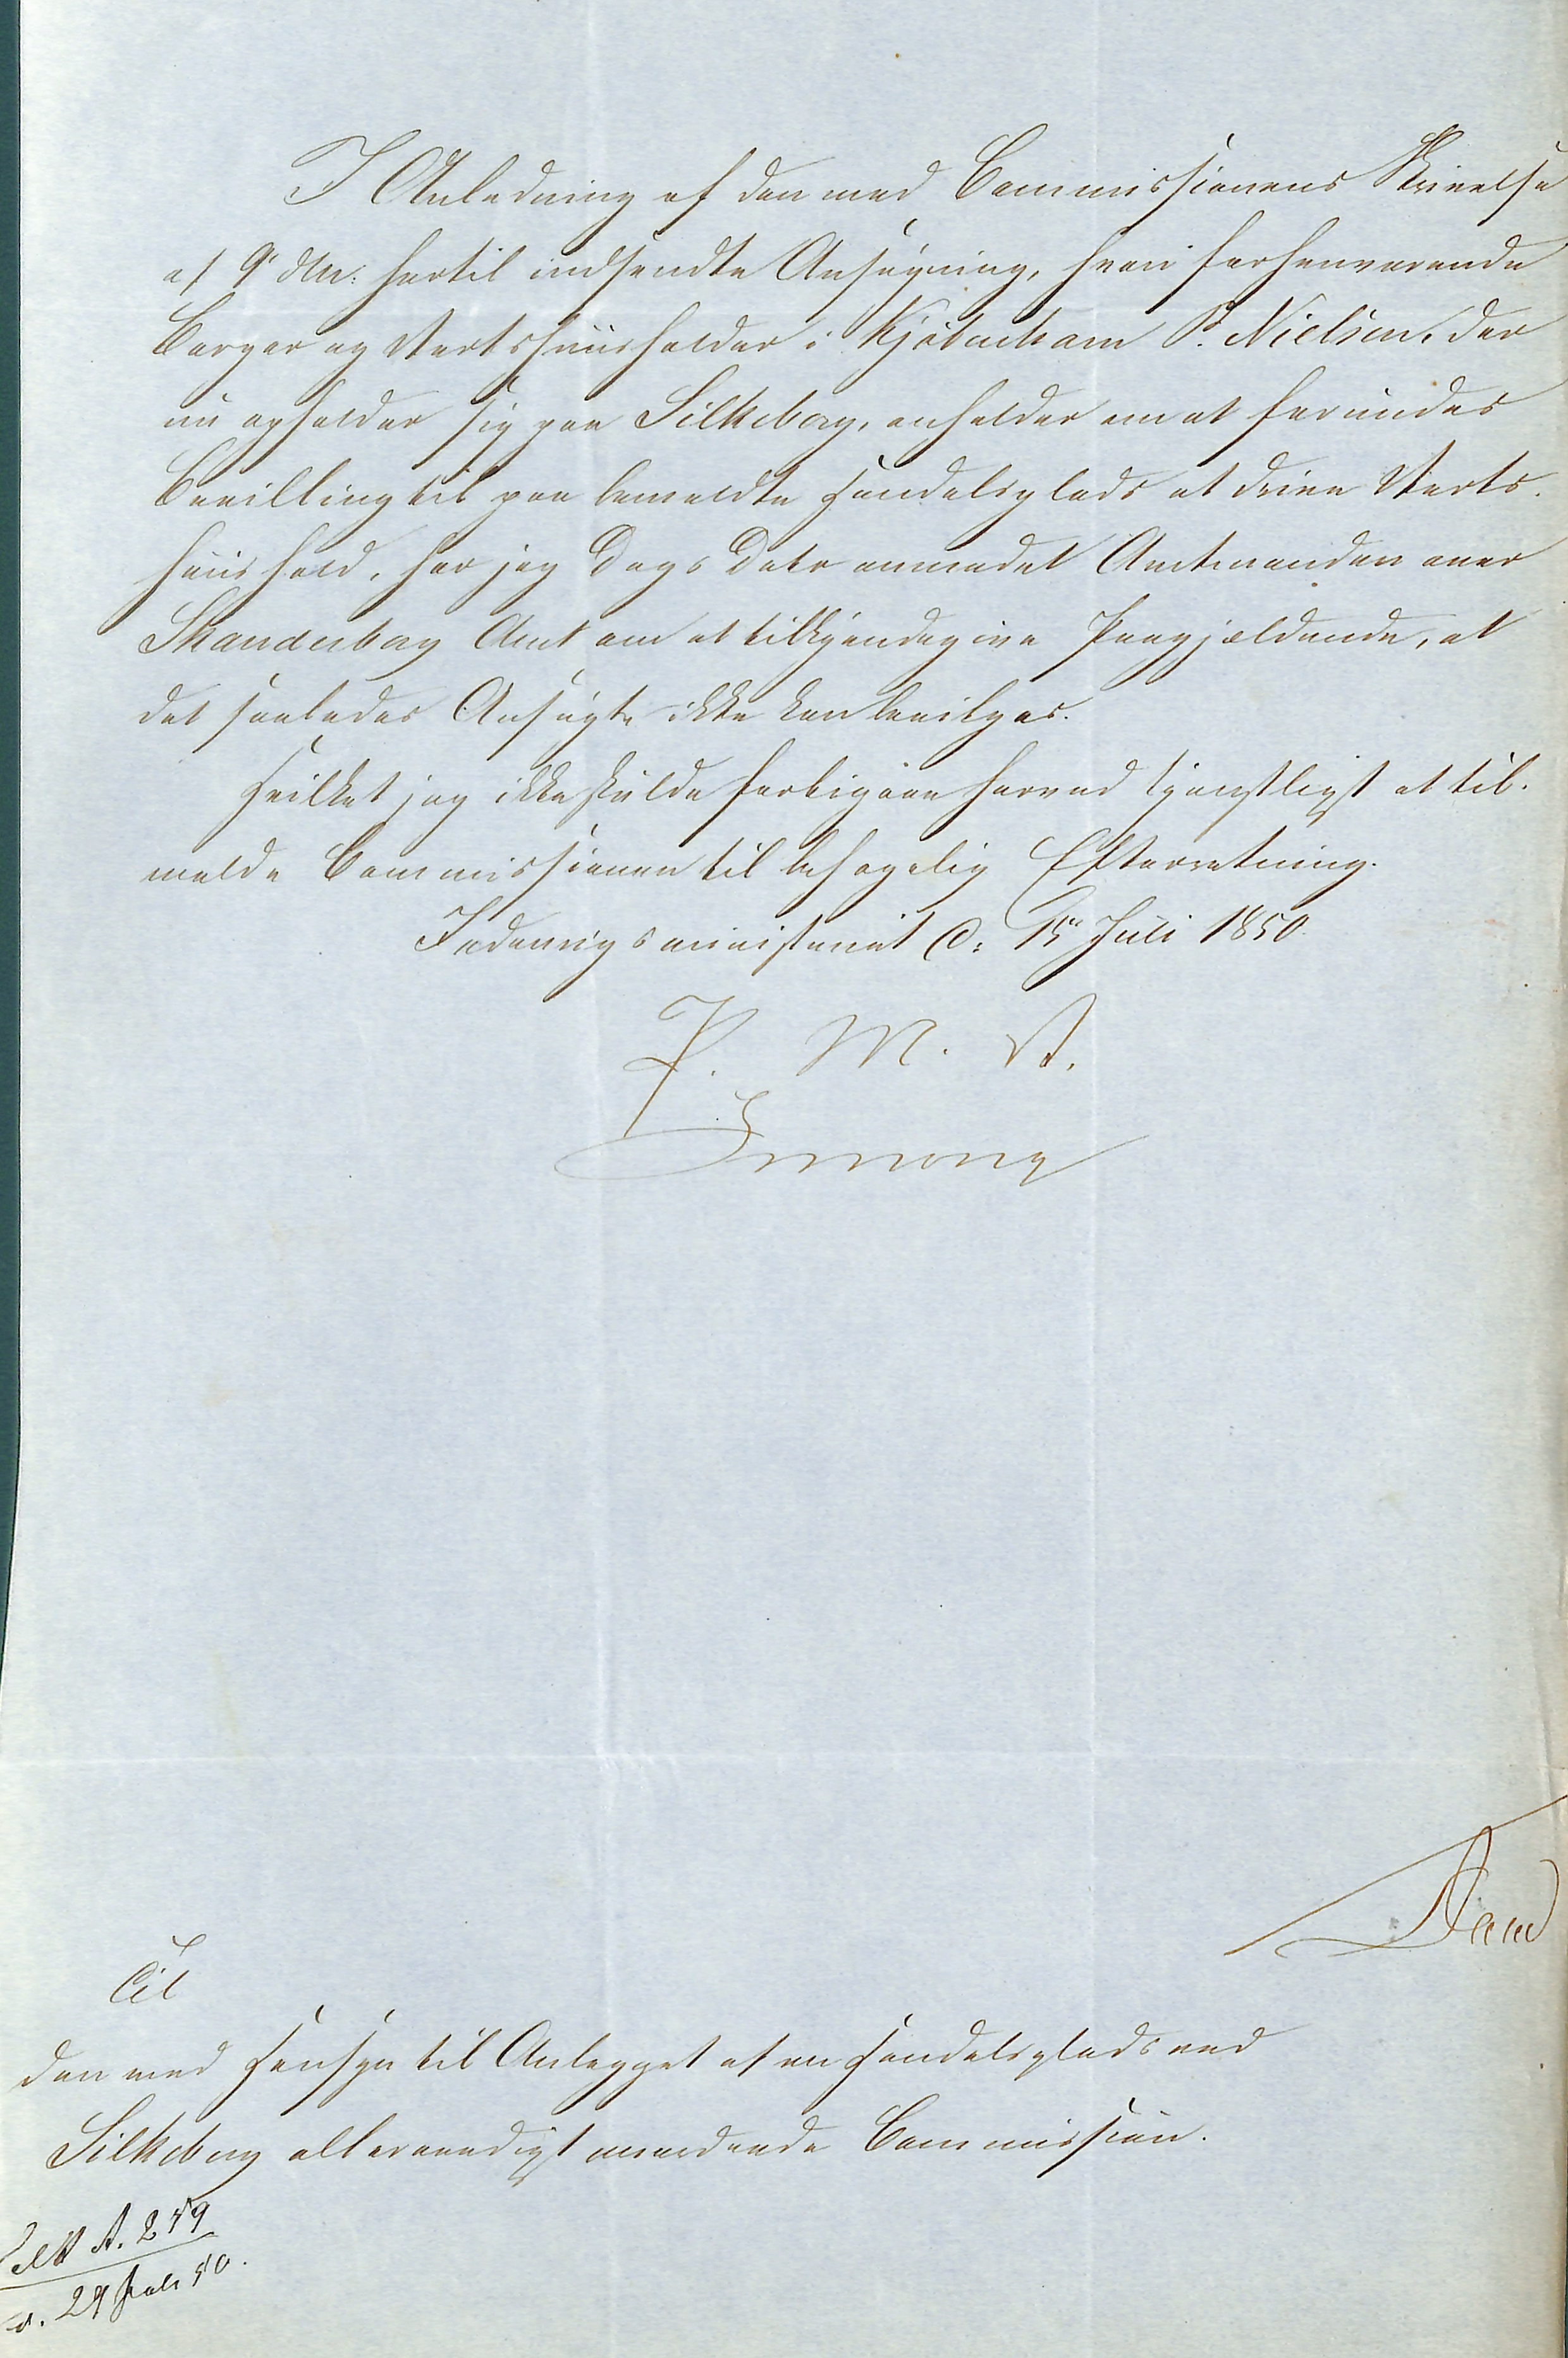 I Anledning af den med Commissionens Skrivelse
af 9' dM: hertil indsendte Ansøgning, hvori forhenværende
Borger og Værtshuusholder i Kjøbenhavn P. Nielsen, der
nu opholder sig paa Silkeborg, anholder om at forundes
Bevilling til paa bemeldte Handelsplads at drive Værts-
huushold, har jeg Dags Dato anmodet Amtmanden over
Skanderborg Amt om at tilkjendegive Paagjældende, at
det saaledes Ansøgte ikke kan bevilges.
Hvilket jeg ikke skulde forbigaae herved tjenstligst at til-
melde Commissionen til behagelig Efterretning.
Indenrigsministeriet d: 15de Juli 1850.
P. M. V.
Simony
Til
den med Hensyn til Anlægget af en Handelsplads ved
Silkeborg allernaadigst anordnede Commission.
A. 259
d. 29 Juli 50.